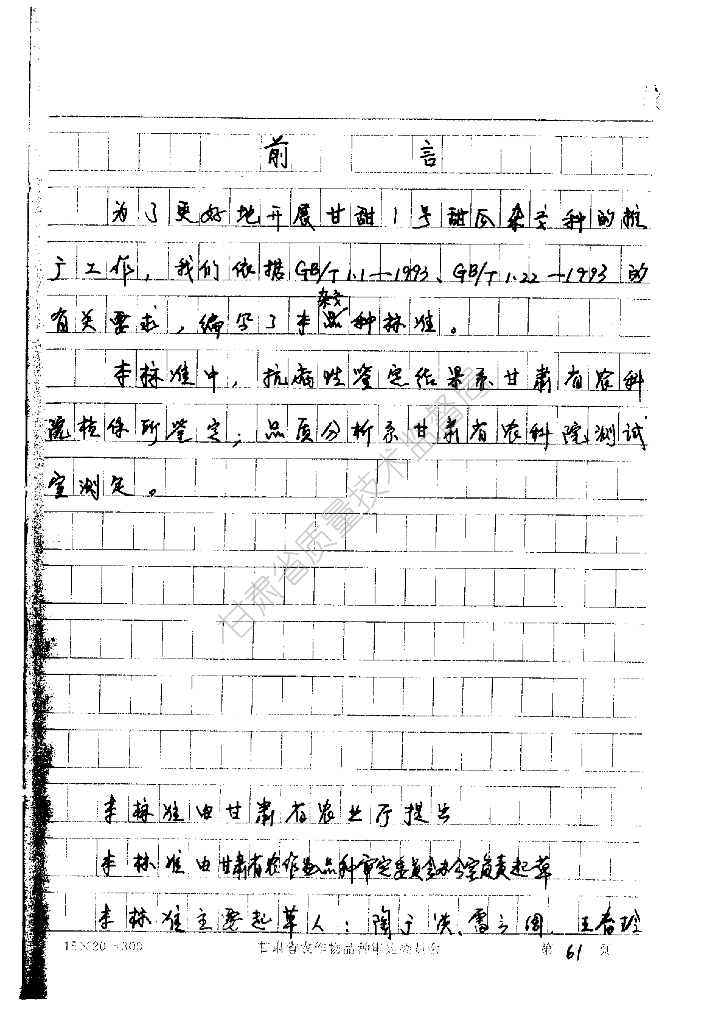 前言
为了更好地开展甘甜1号甜瓜杂交种的推
广工作，我们依据GB/T 1.1—1993、GB/T 1.22—1993的
有关要求，编写了本杂交品种标准。
本标准中，抗病性鉴定结果系甘肃省农科
院植保所鉴定；品质分析系甘肃省农科院测试
室测定。
甘肃省质量技术监督局
本标准由甘肃省农业厅提出
本标准由甘肃省农作物品种审定委员会办公室负责起草
本标准主要起草人：陶广洪、雷 王春玲
15×20=300 甘肃省农作物品种审定委员会 第61页